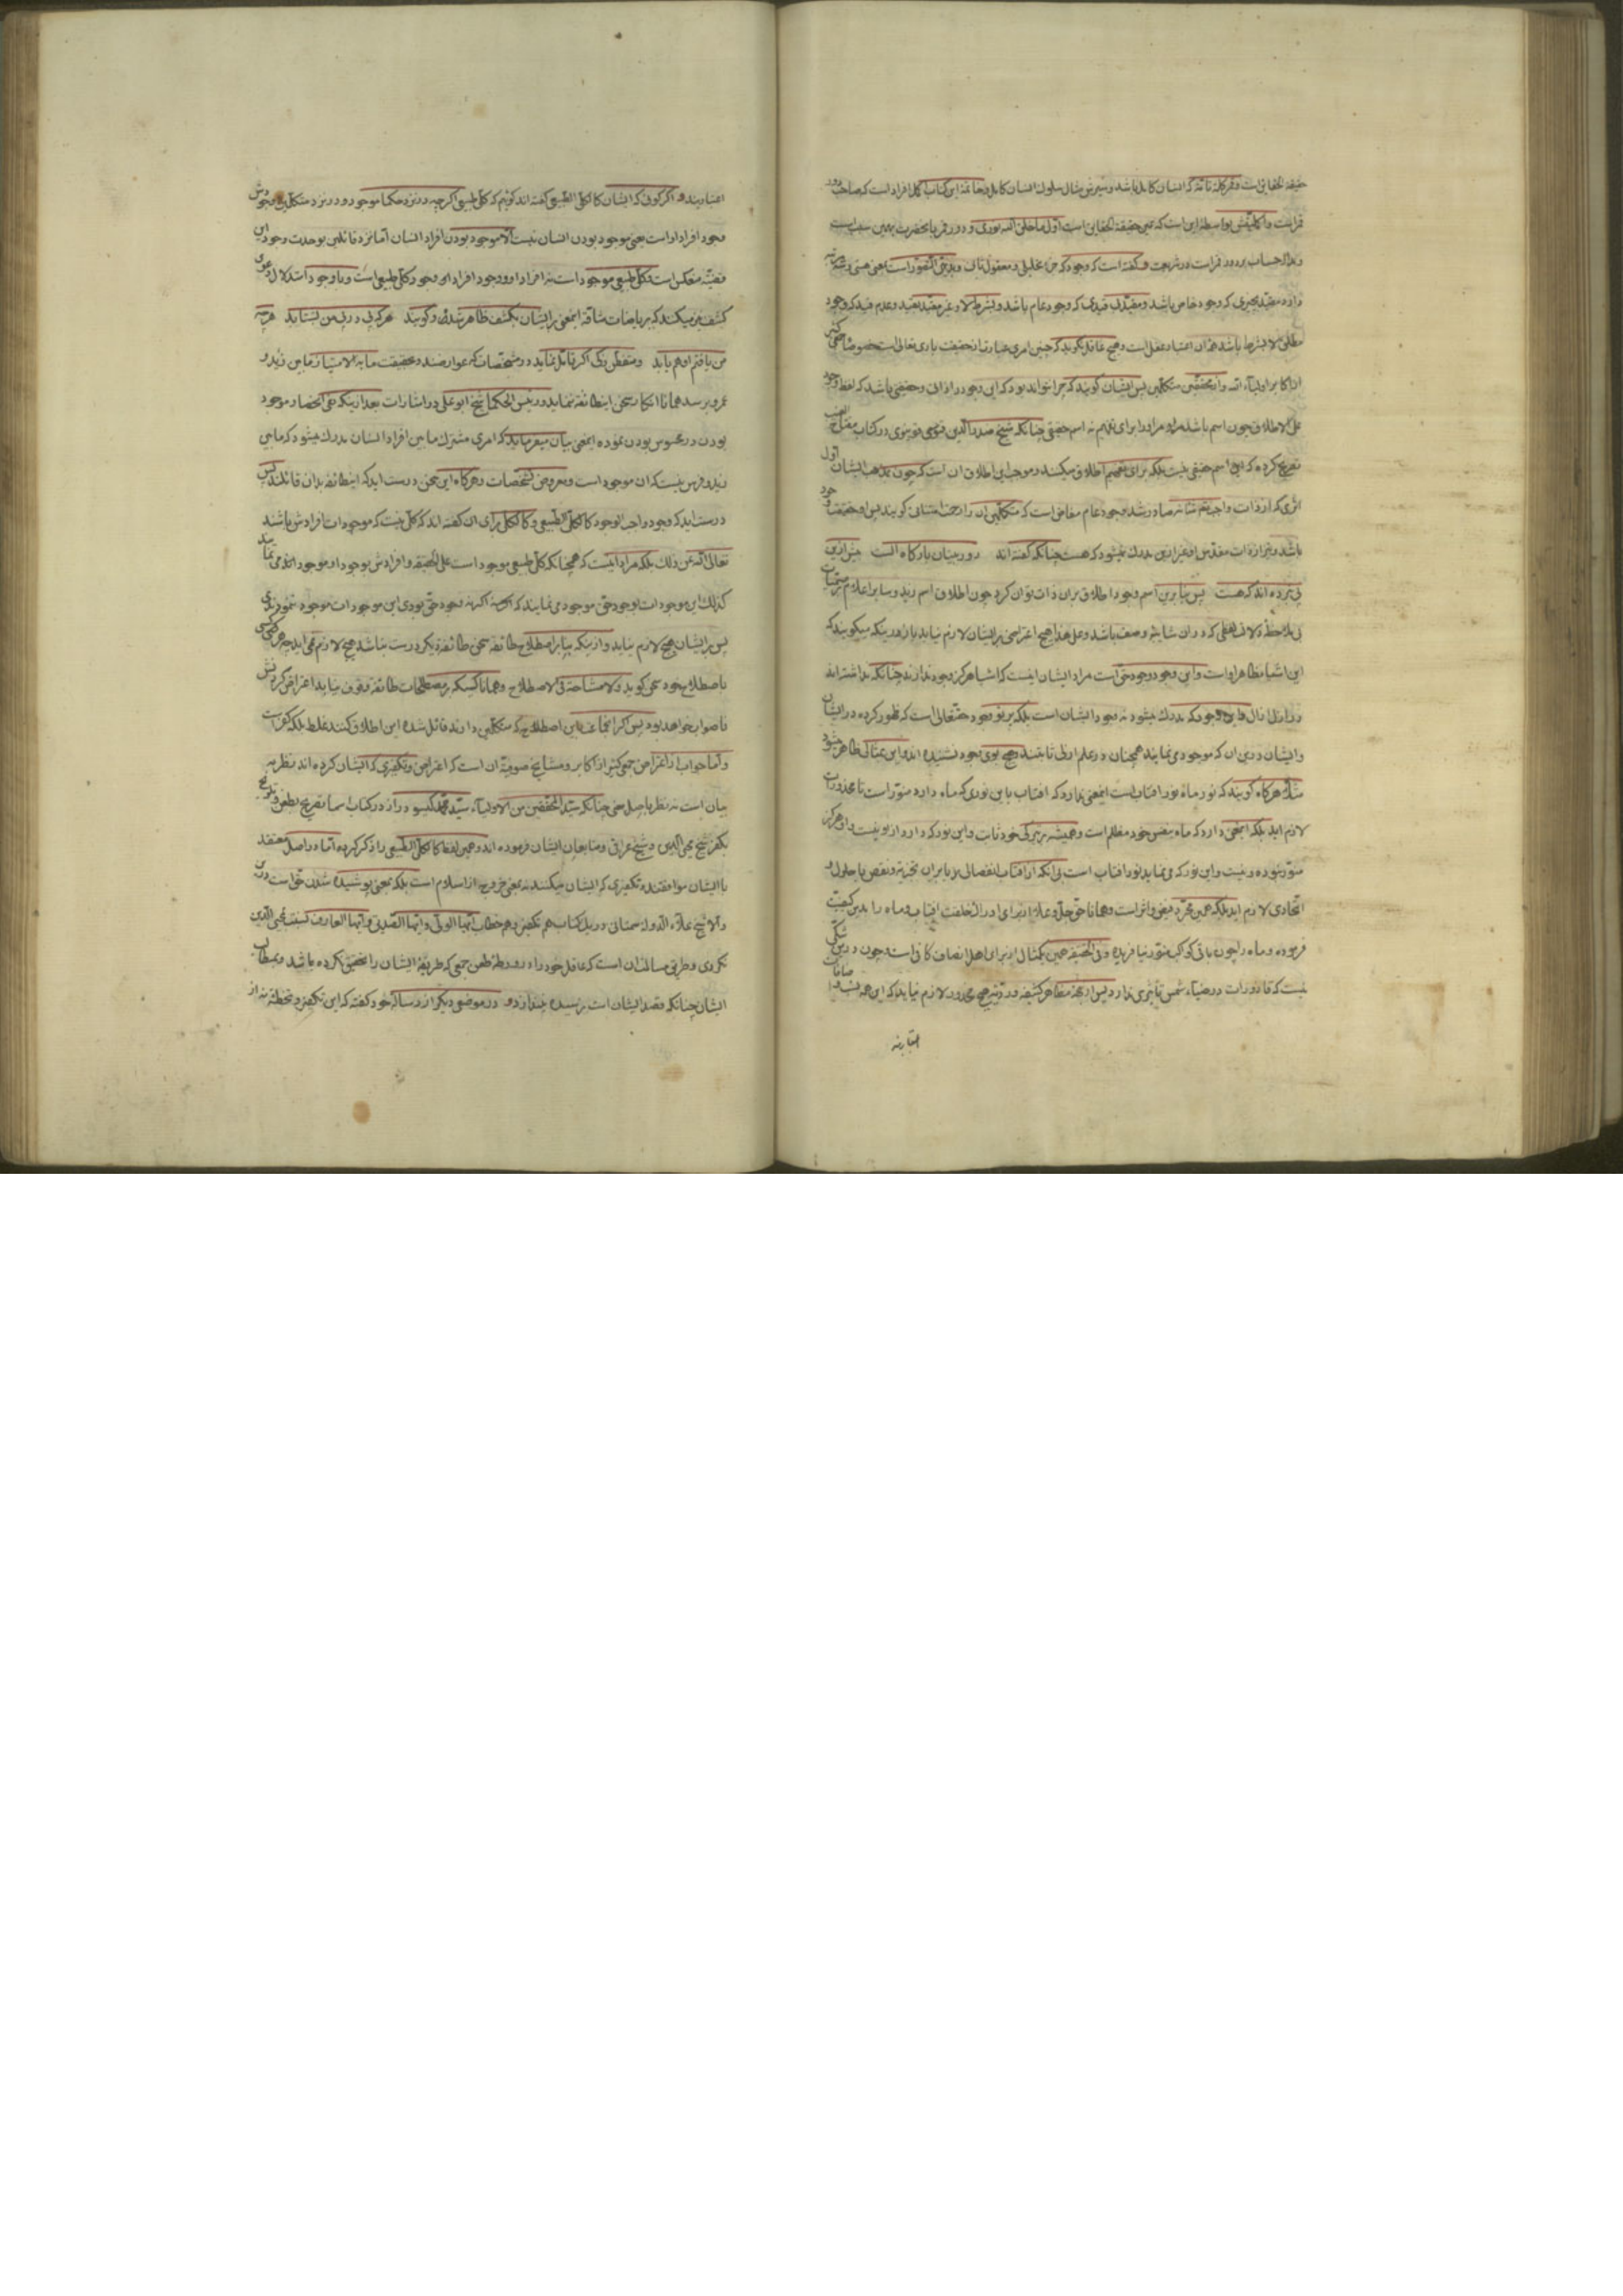 حقیقة الحقایق است و قمر کلمه ثانیه که انسان کامل باشد و سیزدهی مثال سلوک انسان کامل و خاتمهٔ این کتاب کل افراد است که صاحب دور
قمر است و این است که عین حقیقة الحقایق است اول ما خلق الله نوری و دور قمر با حضرت بهمین سبب است
و مدار حساب بر دور قمر است در شریعت و گفته است که وجود که جزء تحلیلی و معقول ثانی و بدیهی التصور است یعنی هستی و سه مرتبه
دارد مقید بچیزی که وجود خاص باشد و مقید بی قیدی که وجود عام باشد و بشرط لا و غیر مقید بقید و عدم قید که وجود
مطلق لا بشرط باشد همه آن اعتبار عقل است و هیچ عاقل نگوید که چنین امری عبارت از حقیقت باری تعالی است خصوصا جمعی کثیر
از اکابر اولیاء الله و از محققین متکلمین پس ایشان گویند که چرا نتواند بود که این وجود را ذاتی و حقیقی باشد که لفظ وجود
علی الاطلاق چون اسم باشد مر او را و برای تفهیم نه اسم حقیقی چنانکه شیخ صدرالدین قونوی در کتاب مفتاح الغیب
تصریح کرده که این اسم حقیقی نیست بلکه برای تفهیم اطلاق میکنند و موجب این اطلاق آن است که چون بمذهب ایشان اول
اثری که از ذات واجب تعالی شانه صادر شد وجود عام مفاض است که متکلمین آن را رحمت امتنانی گویند پس او حقیقت وجود
باشد و غیر از ذات مقدس او غیر ازین مدرک نمیشود که هست چنانکه گفته اند دوربینان بارگاه الست بیش ازین
پی نبرده اند که هست پس بنابرین اسم وجود اطلاق بران ذات توان کرد چون اطلاق اسم زید و سایر اعلام بر مسمیات
بی ملاحظه دلالت فعلی که در آن شایبه وصف باشد و علی هذا هیچ اعتراضی بر ایشان لازم نیاید باز در اینکه میگویند که
این اشیا مظاهر اواست و این وجود وجود حق است مراد ایشان اینست که اشیا هرگز وجود ندارند چنانکه نداشته اند
در ازل آزال و این وجود که مدرک میشود نه وجود ایشان است بلکه پرتو وجود حقتعالی است که ظهور کرده در ایشان
و ایشان در این آن که موجود می نمایند همچنان در علم ازلی ثابتند و هیچ بوی وجود نشنیده اند و این بمثالی ظاهر میشود
مثلا هرگاه گویند که نور ماه نور آفتاب است این معنی ندارد که آفتاب با این نوری که ماه دارد منور است تا محذورات
لازم آید بلکه این معنی دارد که ماه بنفس خود مظلم است و همیشه بر تیرگی خود ثابت و این نور که دارد از او نیست و او هرگز
منور نبوده و نیست و این نور که می نماید نور آفتاب است بی آنکه از آفتاب انفصالی یا بر آن تجزیه و نقص یا حلول و
اتحادی لازم آید بلکه همین مجرد فیض و اثر است و همانا حق جل و علا از برای ادراک خلقت آفتاب و ماه را بدین کیفیت
فرموده و ماه را چون باقی کواکب منور نیافریده و فی الحقیقه همین یک مثال از برای اهل انصاف کافی است و چون درین شکی
نیست که قاذورات در ضیاء شمس تأثیری ندارد پس از مظاهر کثیفه و ردیه هیچ محذور لازم نیاید که این همه نسب و اضافات
اعتباریه
اعتبارند و اگر گوئی که ایشان کالکلی الطبیعی گفته اند گوئیم که کلی طبیعی اگر چه در نزد حکما موجود و در نزد متکلمین وجودش
وجود افراد او است یعنی موجود بودن انسان نیست الا موجود بودن افراد انسان اما نزد قائلین بوحدت وجود این
قضیه منعکس است و کلی طبیعی موجود است نه افراد او و وجود افراد او وجود کلی طبیعی است و با وجود استدلال دعوی
کشف نیز میکنند که بریاضات شاقه این معنی بر ایشان بکشف ظاهر شده و گویند هر که پی در پی من بشتابد هر چه
من یافتم او هم یابد و متفطن زکی اگر تأمل نماید در مشخصات که عوارضند و حقیقت ما به الامتیاز ما بین زید و
عمرو برسد همانا انکار سخن این طائفه ننماید و رئیس الحکما شیخ ابو علی در اشارات بعد از اینکه نفی انحصار موجود
بودن در محسوس بودن نموده این معنی بیان میفرماید که امری مشترک ما بین افراد انسان مدرک میشود که ما بین
زید و فرس نیست که آن موجود است و معروض تشخصات و هرگاه این سخن درست آید که این طائفه بدان قائلند پس
درست آید که وجود واجب الوجود کالکلی الطبیعی و کالکلی برای آن گفته اند که کلی نیست که موجودات افرادش باشند
تعالی الله عن ذلک بلکه مراد اینست که همچنانکه کلی طبیعی موجود است علی الحقیقه و افرادش بوجود او موجود اند می نمایند
کذلک این موجودات بوجود حق موجود می نمایند که اگر نه وجود حق بودی این موجودات موجود ننمودندی
پس بر ایشان هیچ لازم نیاید و از اینکه بنابر اصطلاح طائفه سخن طائفه دیگر درست نباشد هیچ لازم نمی آید چه هر کسی
باصطلاح خود سخن گوید و لا مشاحة فی الاصطلاح و همانا کسیکه بر مصطلحات طائفه وقوف نیابد اعتراض کردنش
ناصواب خواهد بود پس اگر این اصطلاح که متکلمین دارند قائل شده این اطلاق کنند غلط بلکه کفر است
و اما جواب از اعتراض جمعی کثیر از اکابر و مشایخ صوفیه آن است که اعتراض و تکفیری که ایشان کرده اند نظر به
بیان است نه نظر باصل سخن چنانکه سید المحققین من الاولیاء سید محمد گیسو دراز در کتاب اسما تصریح بطعن و تلویح
بکفر شیخ محیی الدین و شیخ عراقی و متابعان ایشان فرموده اند و همین لفظ کالکلی الطبیعی را ذکر کرده اما در اصل معتقد
با ایشان موافقند و تکفیری که ایشان میکنند نه بمعنی خروج از اسلام است بلکه بمعنی پوشیده شدن حق است
و الا شیخ علاء الدوله سمنانی در یک کتاب هم تکفیر و هم خطاب ایها الولی و ایها الصدیق و ایها العارف نسبت بمحیی الدین
نکردی و طریق مسالمت آن است که عاقل خود را در ورطه طعن جمعی که طریقه ایشان را تحقیق نکرده باشد و بمطالب
ایشان چنانکه قصد ایشان است نرسیده نیندازد و در موضعی دیگر از رساله خود گفته که این تکفیر و تخطئه نه از